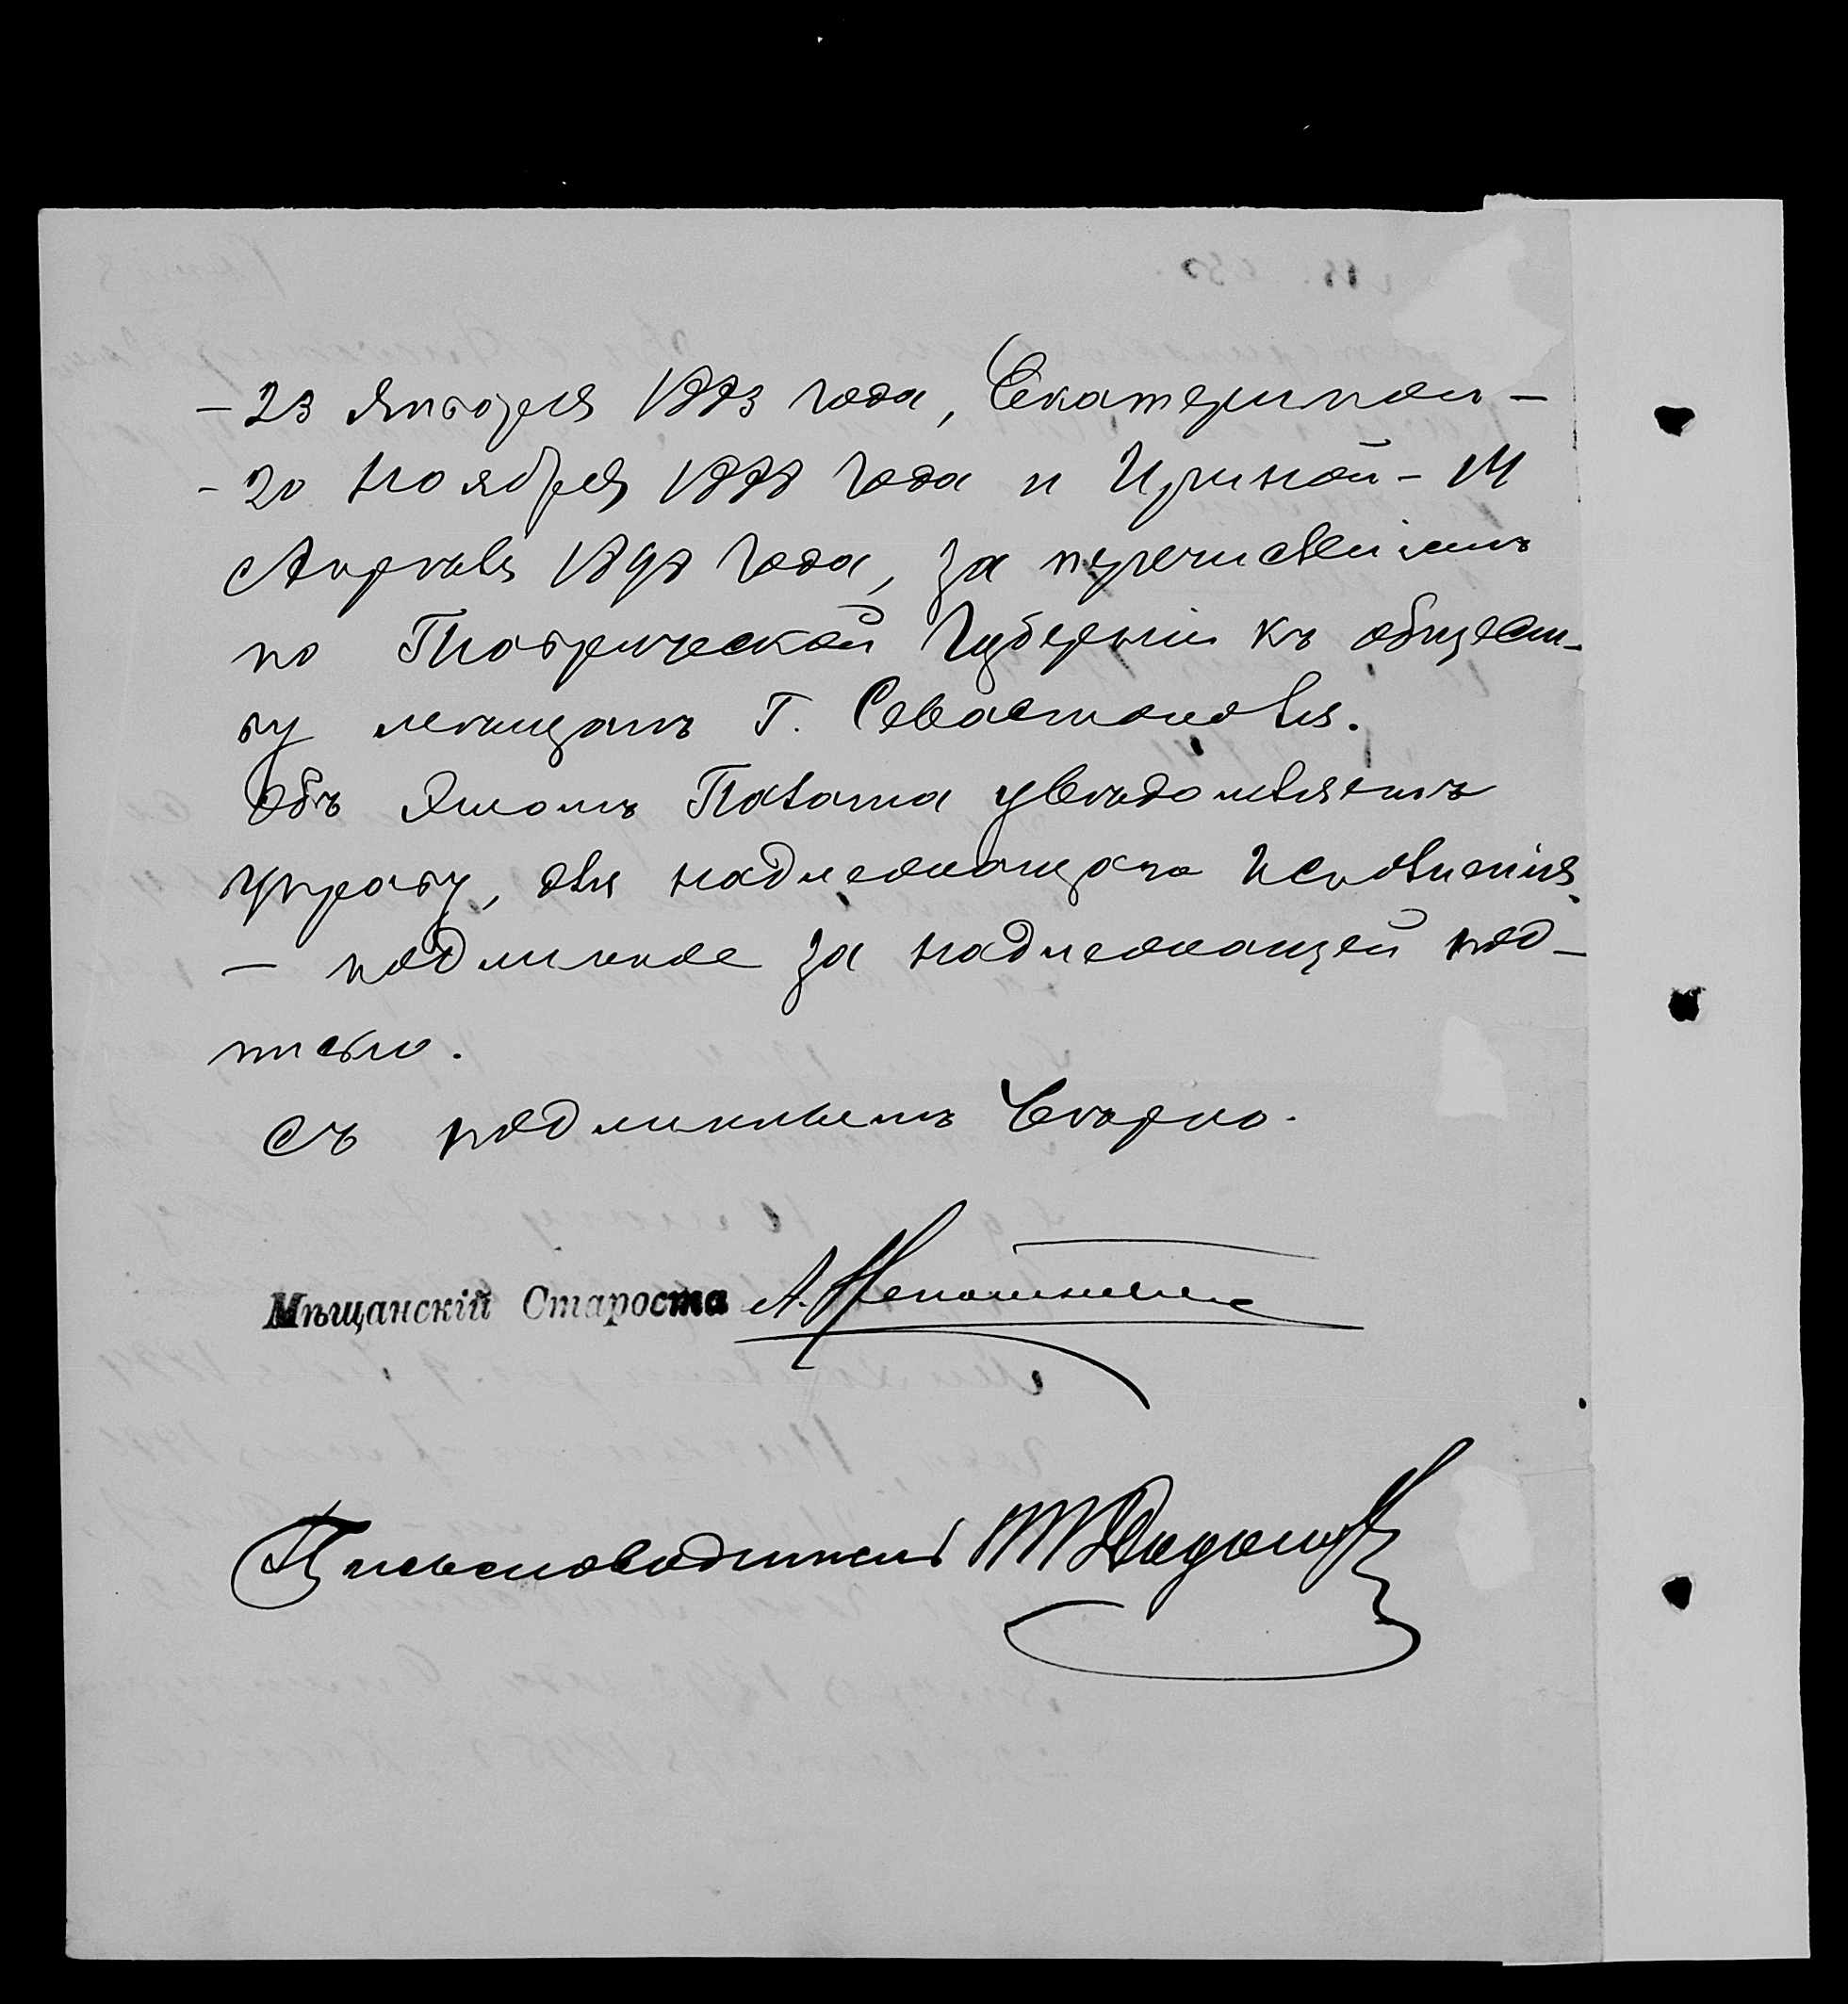 - 23 Января 1893 года, Екатериной -
- 20 Ноября 1898 года и Ириной - 14
Апрѣля 1898 года, за перечисленіемъ
по Таврической Губерніи къ общест-
ву мѣщанъ г. Севастополя.
Объ этомъ Палата увѣдомляетъ
Управу, для надлежащаго исполненія.
- подлинное за надлежащей под-
писью.
Съ подлиннымъ вѣрно.
Мѣщанскій Староста А.
Письмоводитель